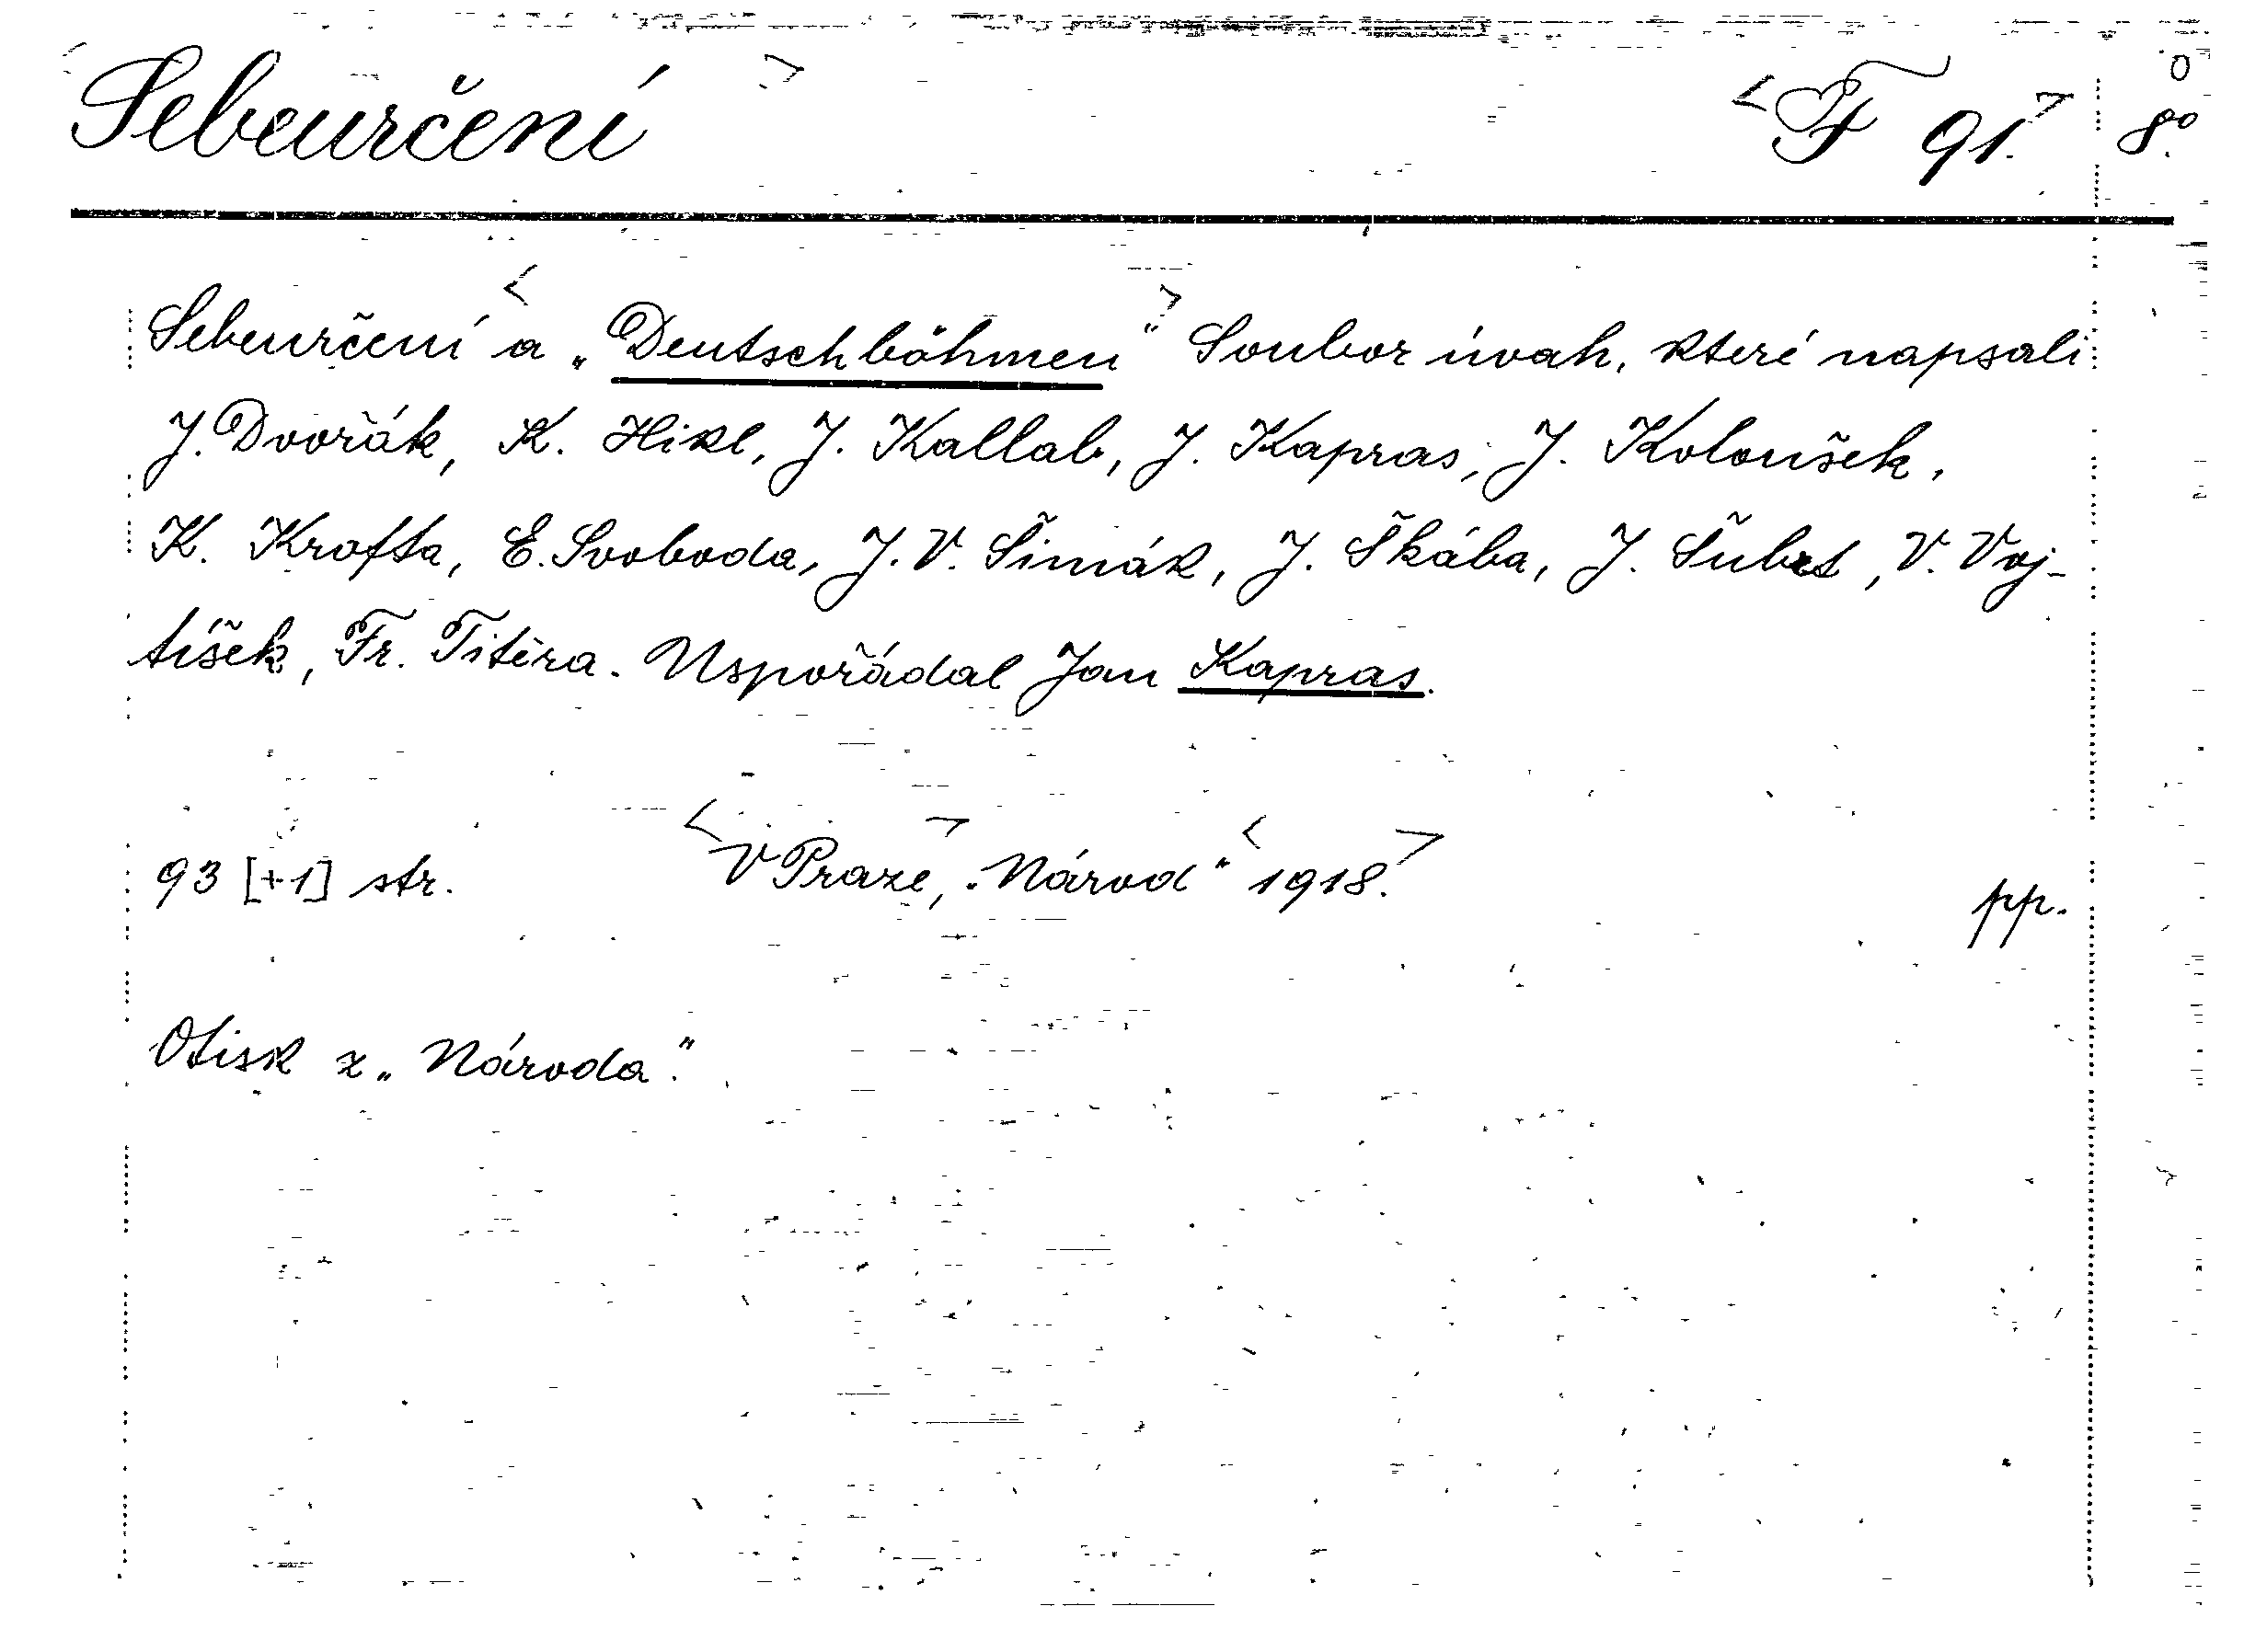 Sebeurčení F 91. 8.º
Sebeurčení a „Deutschböhmen“ Soubor úvah, které napsali
J. Dvořák, K. Hikl, J. Kallab, J. Kapras, J. Koloušek,
K. Krofta, E. Svoboda, J. V. Šimák, J. Škába, J. Šubrt, V. Voj-
tíšek, Fr. Titěra. Uspořádal Jan Kapras.
93 [+1] str. V Praze, „Národ“ 1918.
pp.
Otisk z „Národa“.